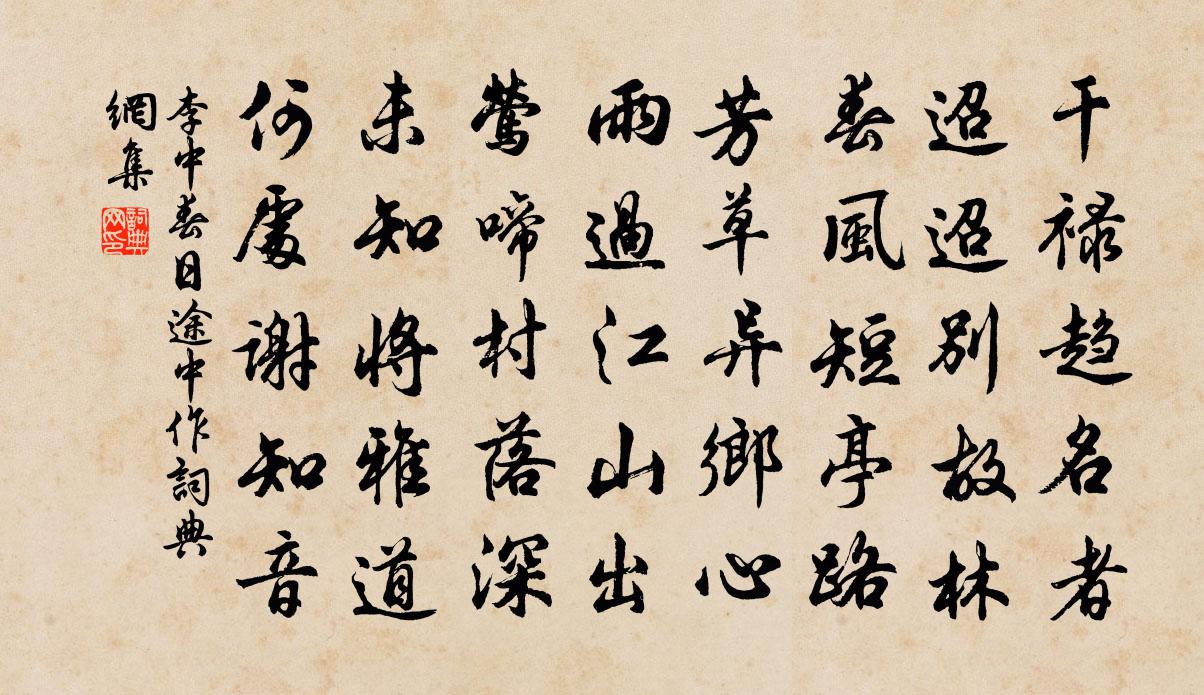 干禄趋名者
迢迢别故林
春風短亭路
芳草异鄉心
雨過江山出
鶯啼村落深
未知將雅道
何處谢知音
李中春日途中作詞典
網集
詞典
网印